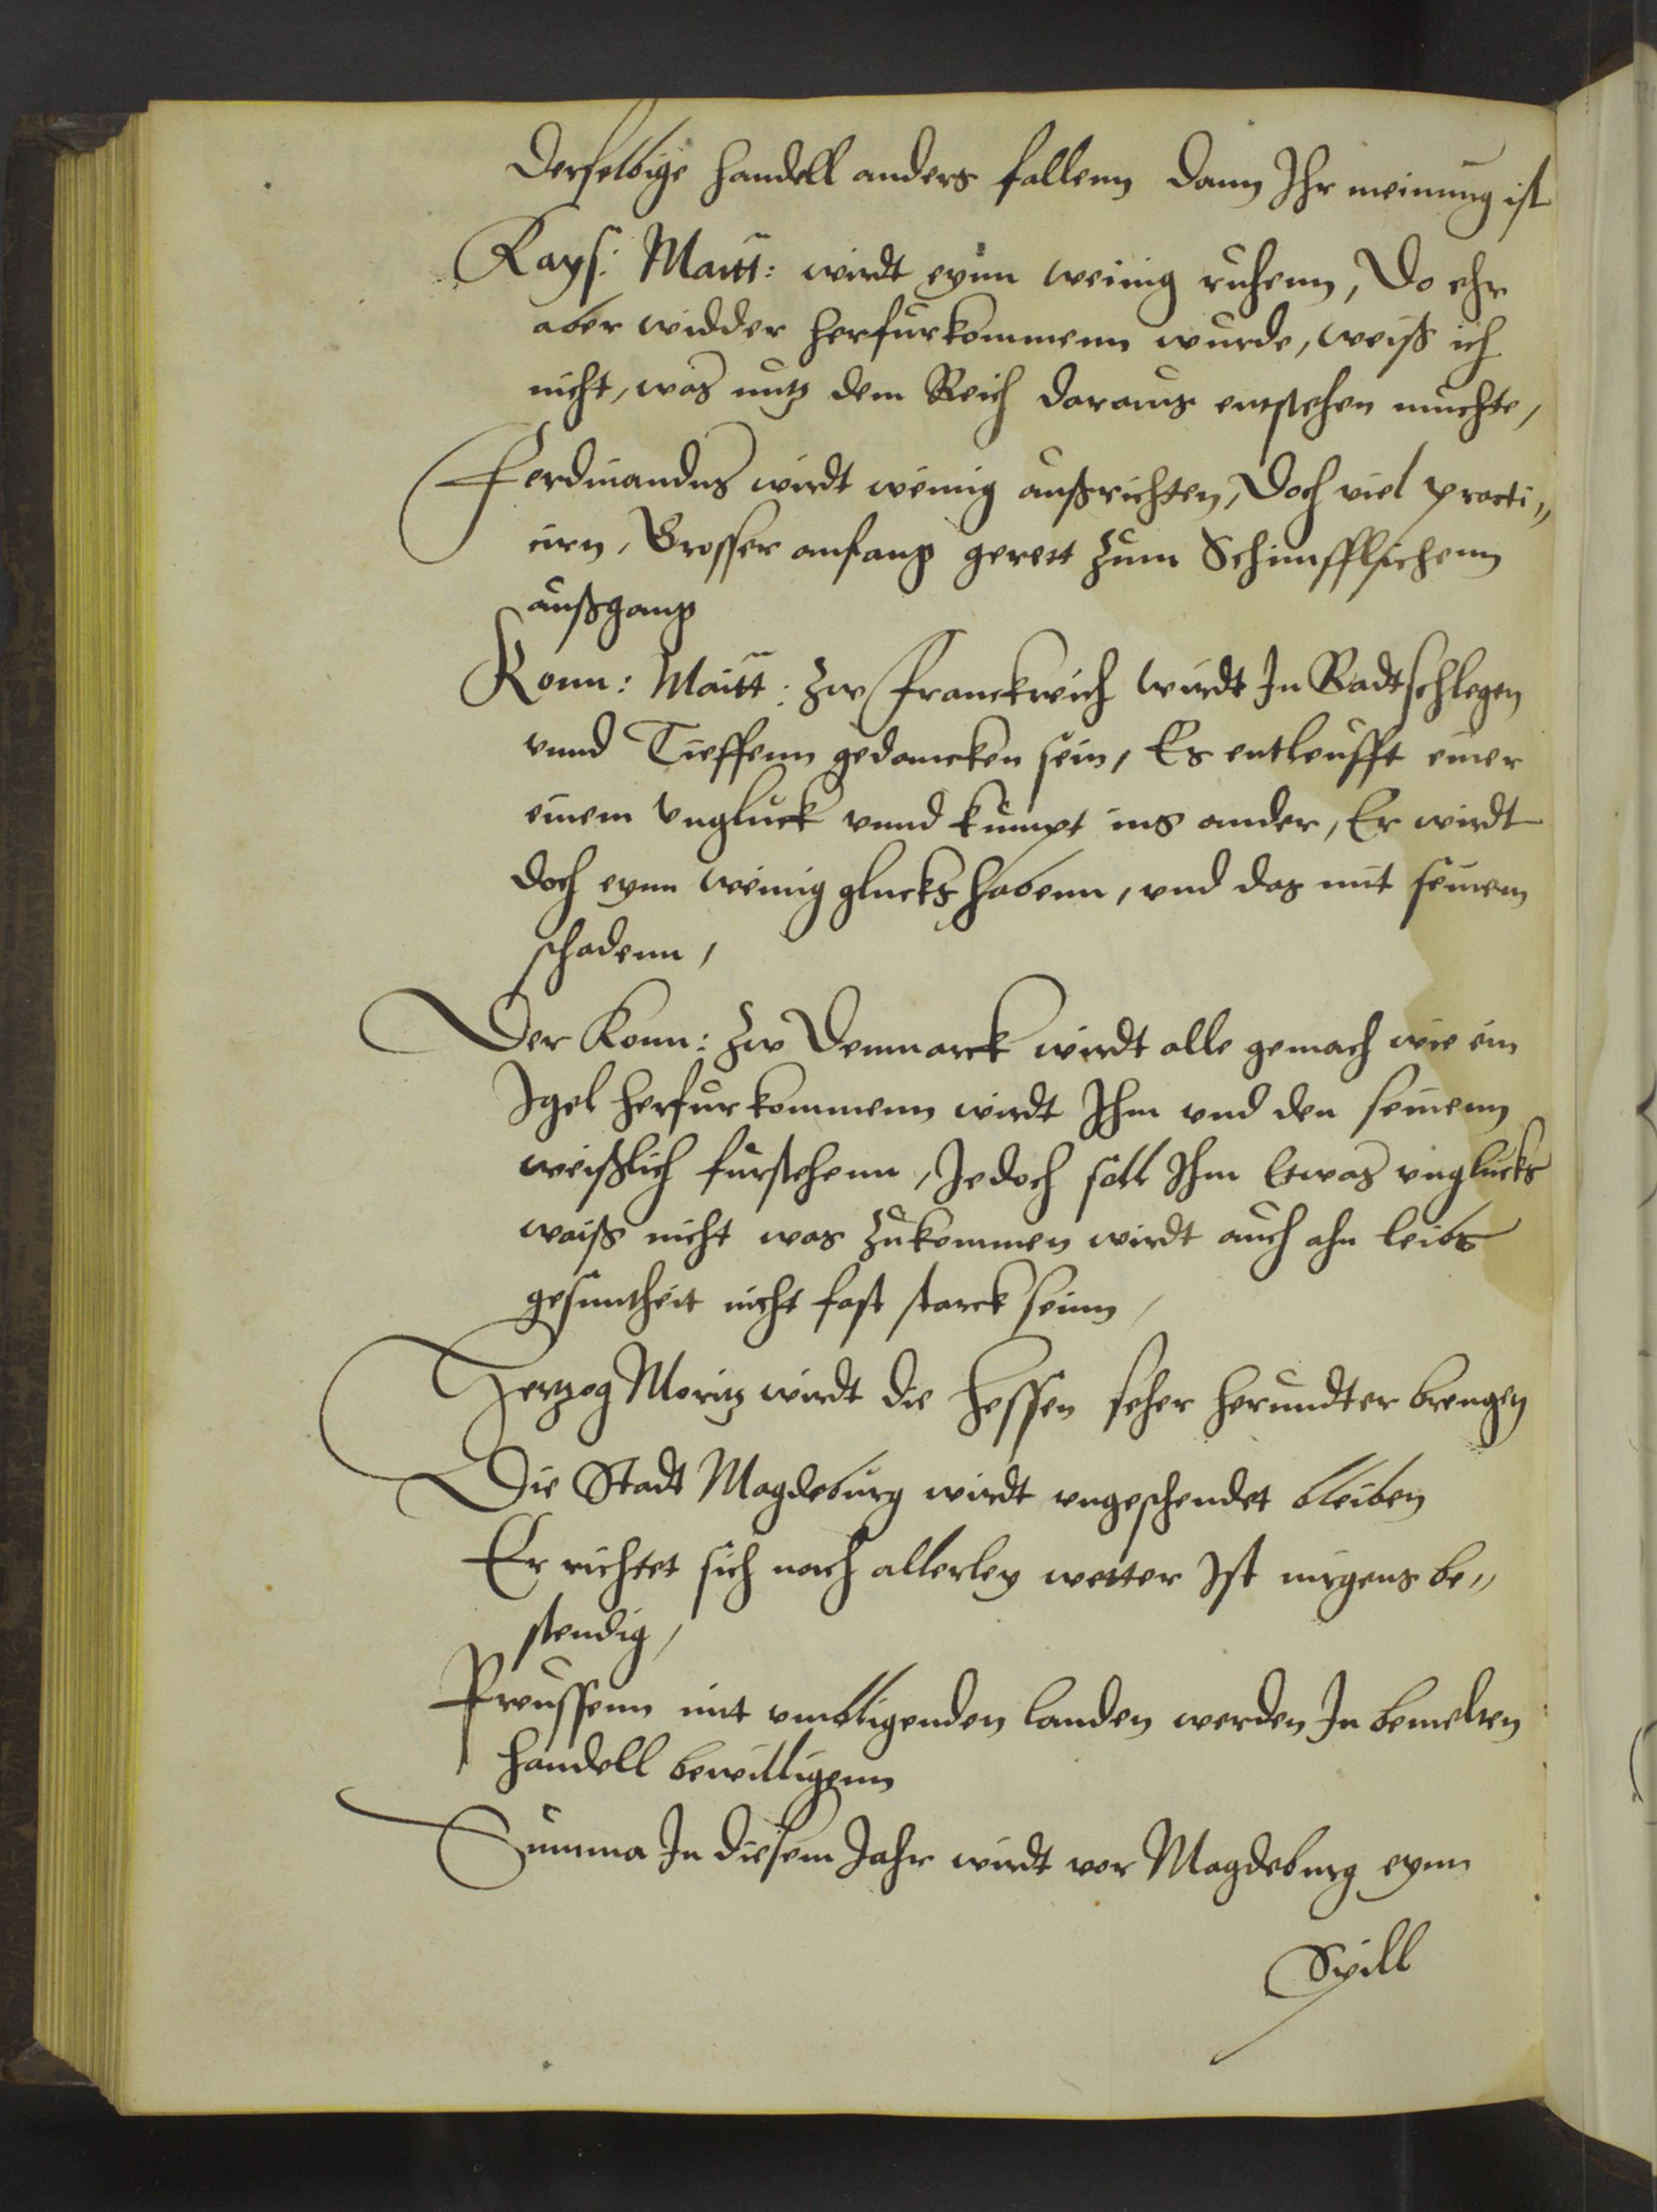 Derselbige handell anders fallenn dann Ihr meinung ist
Kays: Maitt: wirdt eynn weinig ruhenn, Do ehr
aber widder herfurkommenn wurde, weiß ich
nicht, was nutz dem Reich daraus entstehen muchte,
Ferdinandus wirdt weinig außrichten, Doch viel practi„
cirn, Grosser anfang gerett zum Schimpfflichenn
außgang
Konn: Maitt: zw Franckreich wirdt In Radtschlegen
vnnd Tieffenn gedancken sein, Es entleufft einer
einem vngluck vnnd kumpt ins ander, Er wirdt
doch eynn weinig glucks habenn, vnd das mit seinem
schadenn,
Der Konn: zw Denmarck wirdt alle gemach wie ein
Igel herfur kommenn wirdt Ihm vnd den seinenn
weißlich furstehenn, Jedoch soll Ihm Etwas vnglucks
waiß nicht was zukommen wirdt auch ahn leibs
gesuntheit nicht fast starck seinn,
Hertzog Moritz wirdt die Hessen seher herundter brengen
Die Stadt Magdeburg wirdt vngeschendet bleiben
Er richtet sich nach allerley wetter Ist nirgens be„
stendig,
Preussenn mit vmbligenden landen werden In bemelten
handell bewilligenn
Summa In diesem Jahr wirdt vor Magdeburg eynn
Spill